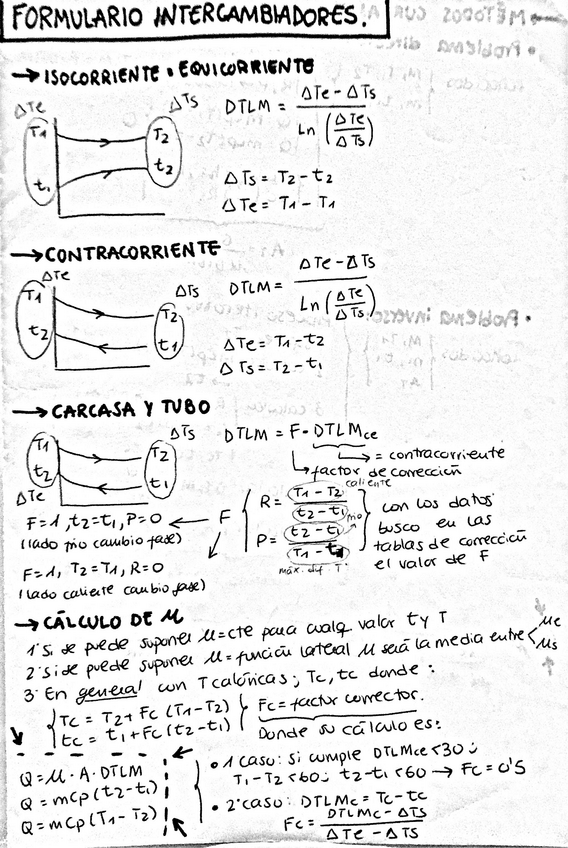 FORMULARIO INTERCAMBIADORES.
→ ISOCORRIENTE o EQUICORRIENTE
ΔTe ΔTs
T1 T2
t1 t2
DTLM = (ΔTe - ΔTs) / Ln (ΔTe / ΔTs)
ΔTs = T2 - t2
ΔTe = T1 - T1
→ CONTRACORRIENTE
ΔTe ΔTs
T1 T2
t2 t1
DTLM = (ΔTe - ΔTs) / Ln (ΔTe / ΔTs)
ΔTe = T1 - t2
ΔTs = T2 - t1
→ CARCASA Y TUBO
T1 T2 ΔTs
t2 t1
ΔTe
DTLM = F · DTLMce
= contracorriente
factor de corrección
F=1, t2=t1, P=0 ← F
(lado frío cambio fase)
F=1, T2=T1, R=0
(lado caliente cambio fase)
R = (T1 - T2) / (t2 - t1) caliente frío
P = (t2 - t1) / (T1 - t1)
máx. dif. T
con los datos
busco en las
tablas de corrección
el valor de F
→ CÁLCULO DE μ
1· Si se puede suponer μ=cte para cualq valor t y T
2· si se puede suponer μ = función lateral μ será la media entre < μe μs
3· En general con T calóricas; Tc, tc donde:
Tc = T2 + Fc (T1 - T2)
tc = t1 + Fc (t2 - t1)
Fc = factor corrector.
Donde su cálculo es:
• 1 caso: si cumple DTLMce <30;
T1 - T2 <60; t2 - t1 <60 → Fc = 0'5
• 2· caso: DTLMc = Tc - tc
Fc = (DTLMc - ΔTs) / (ΔTe - ΔTs)
Q = μ · A · DTLM
Q = mCp (t2 - t1)
Q = mCp (T1 - T2)